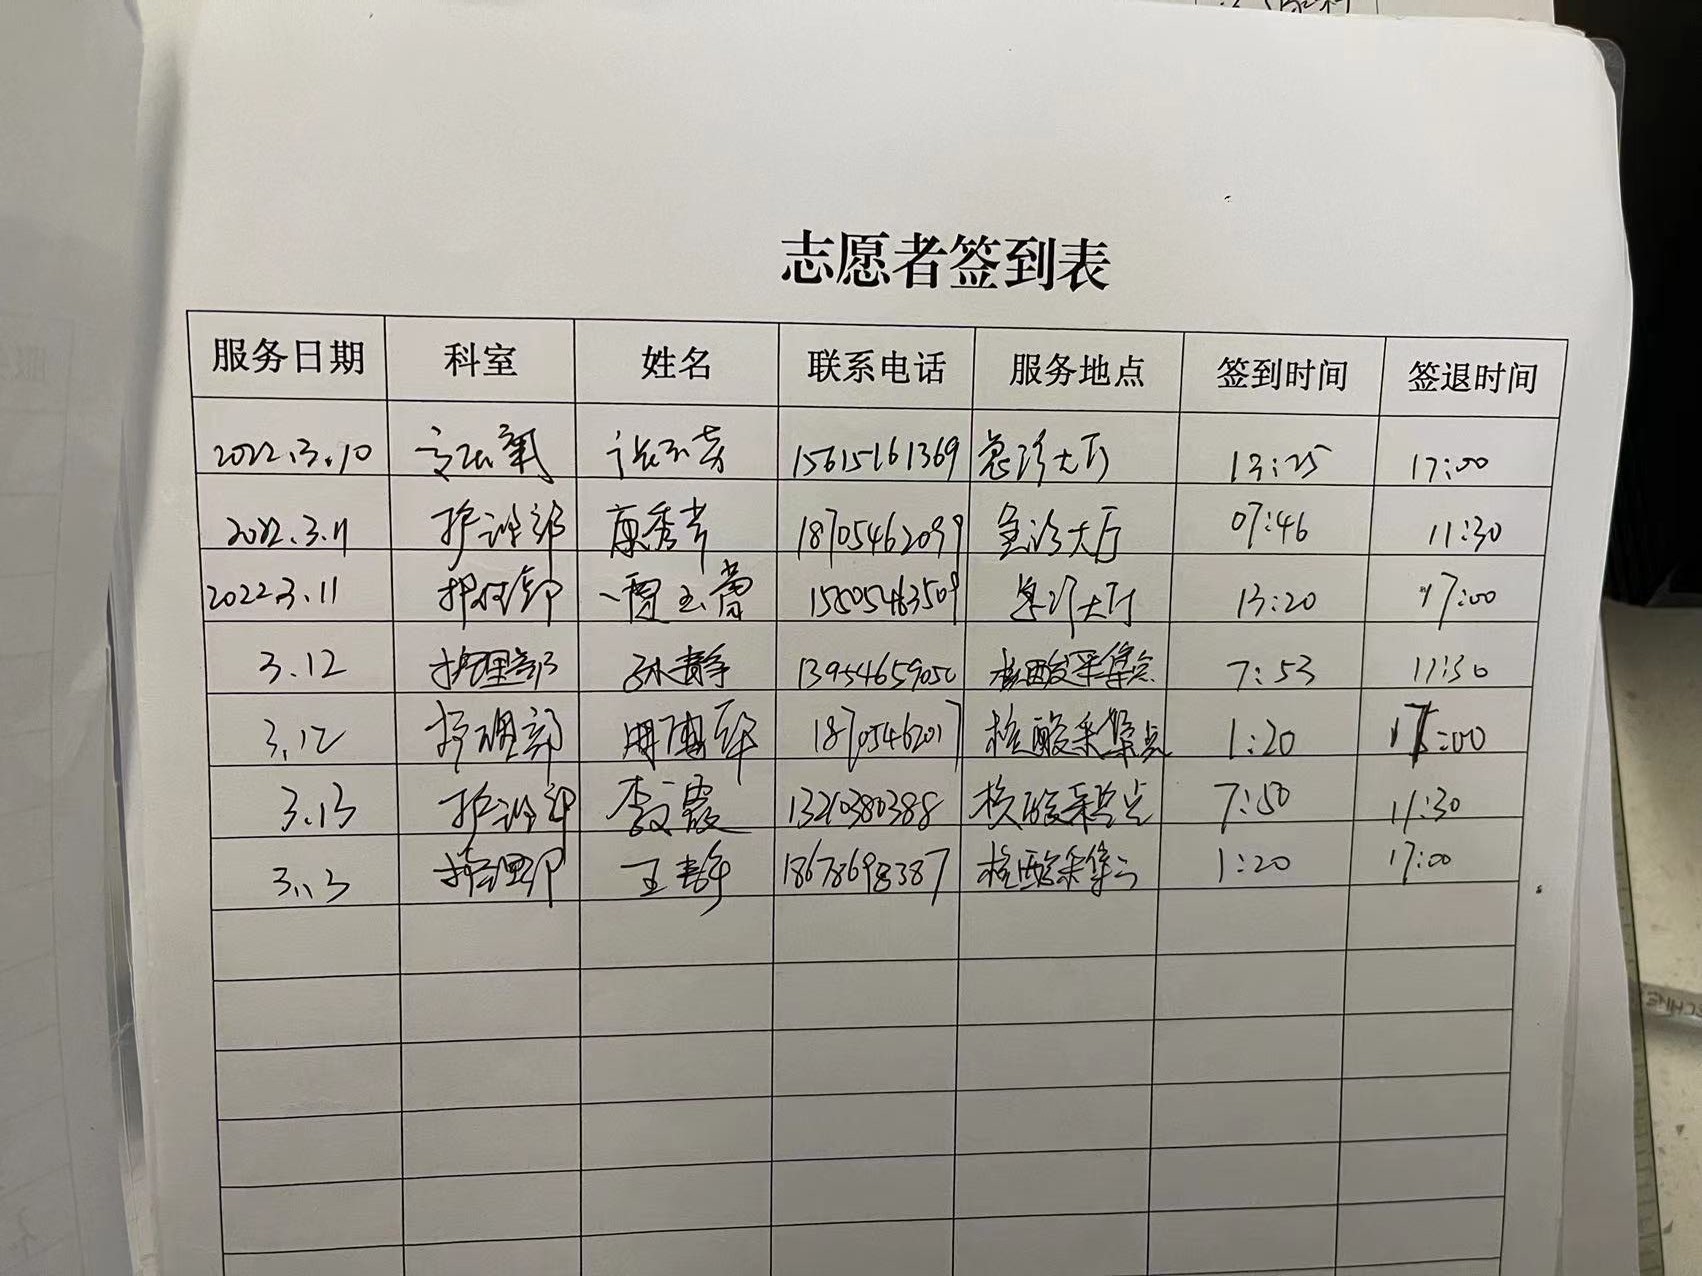 志愿者签到表
服务日期 科室 姓名 联系电话 服务地点 签到时间 签退时间
2022.3.10 15615161369 急诊大厅 13:25 17:00
2022.3.11 护理部 18705462099 急诊大厅 07:46 11:30
2022.3.11 护理部 贾玉蕾 15805463509 急诊大厅 13:20 17:00
3.12 护理部 孙静 13954659050 核酸采集点 7:53 11:30
3.12 护理部 1870546201 核酸采集点 1:20 :00
3.13 护理部 李霞 1321380388 核酸采集点 7:50 11:30
3.13 护理部 王静 18678698387 核酸采集 1:20 17:00